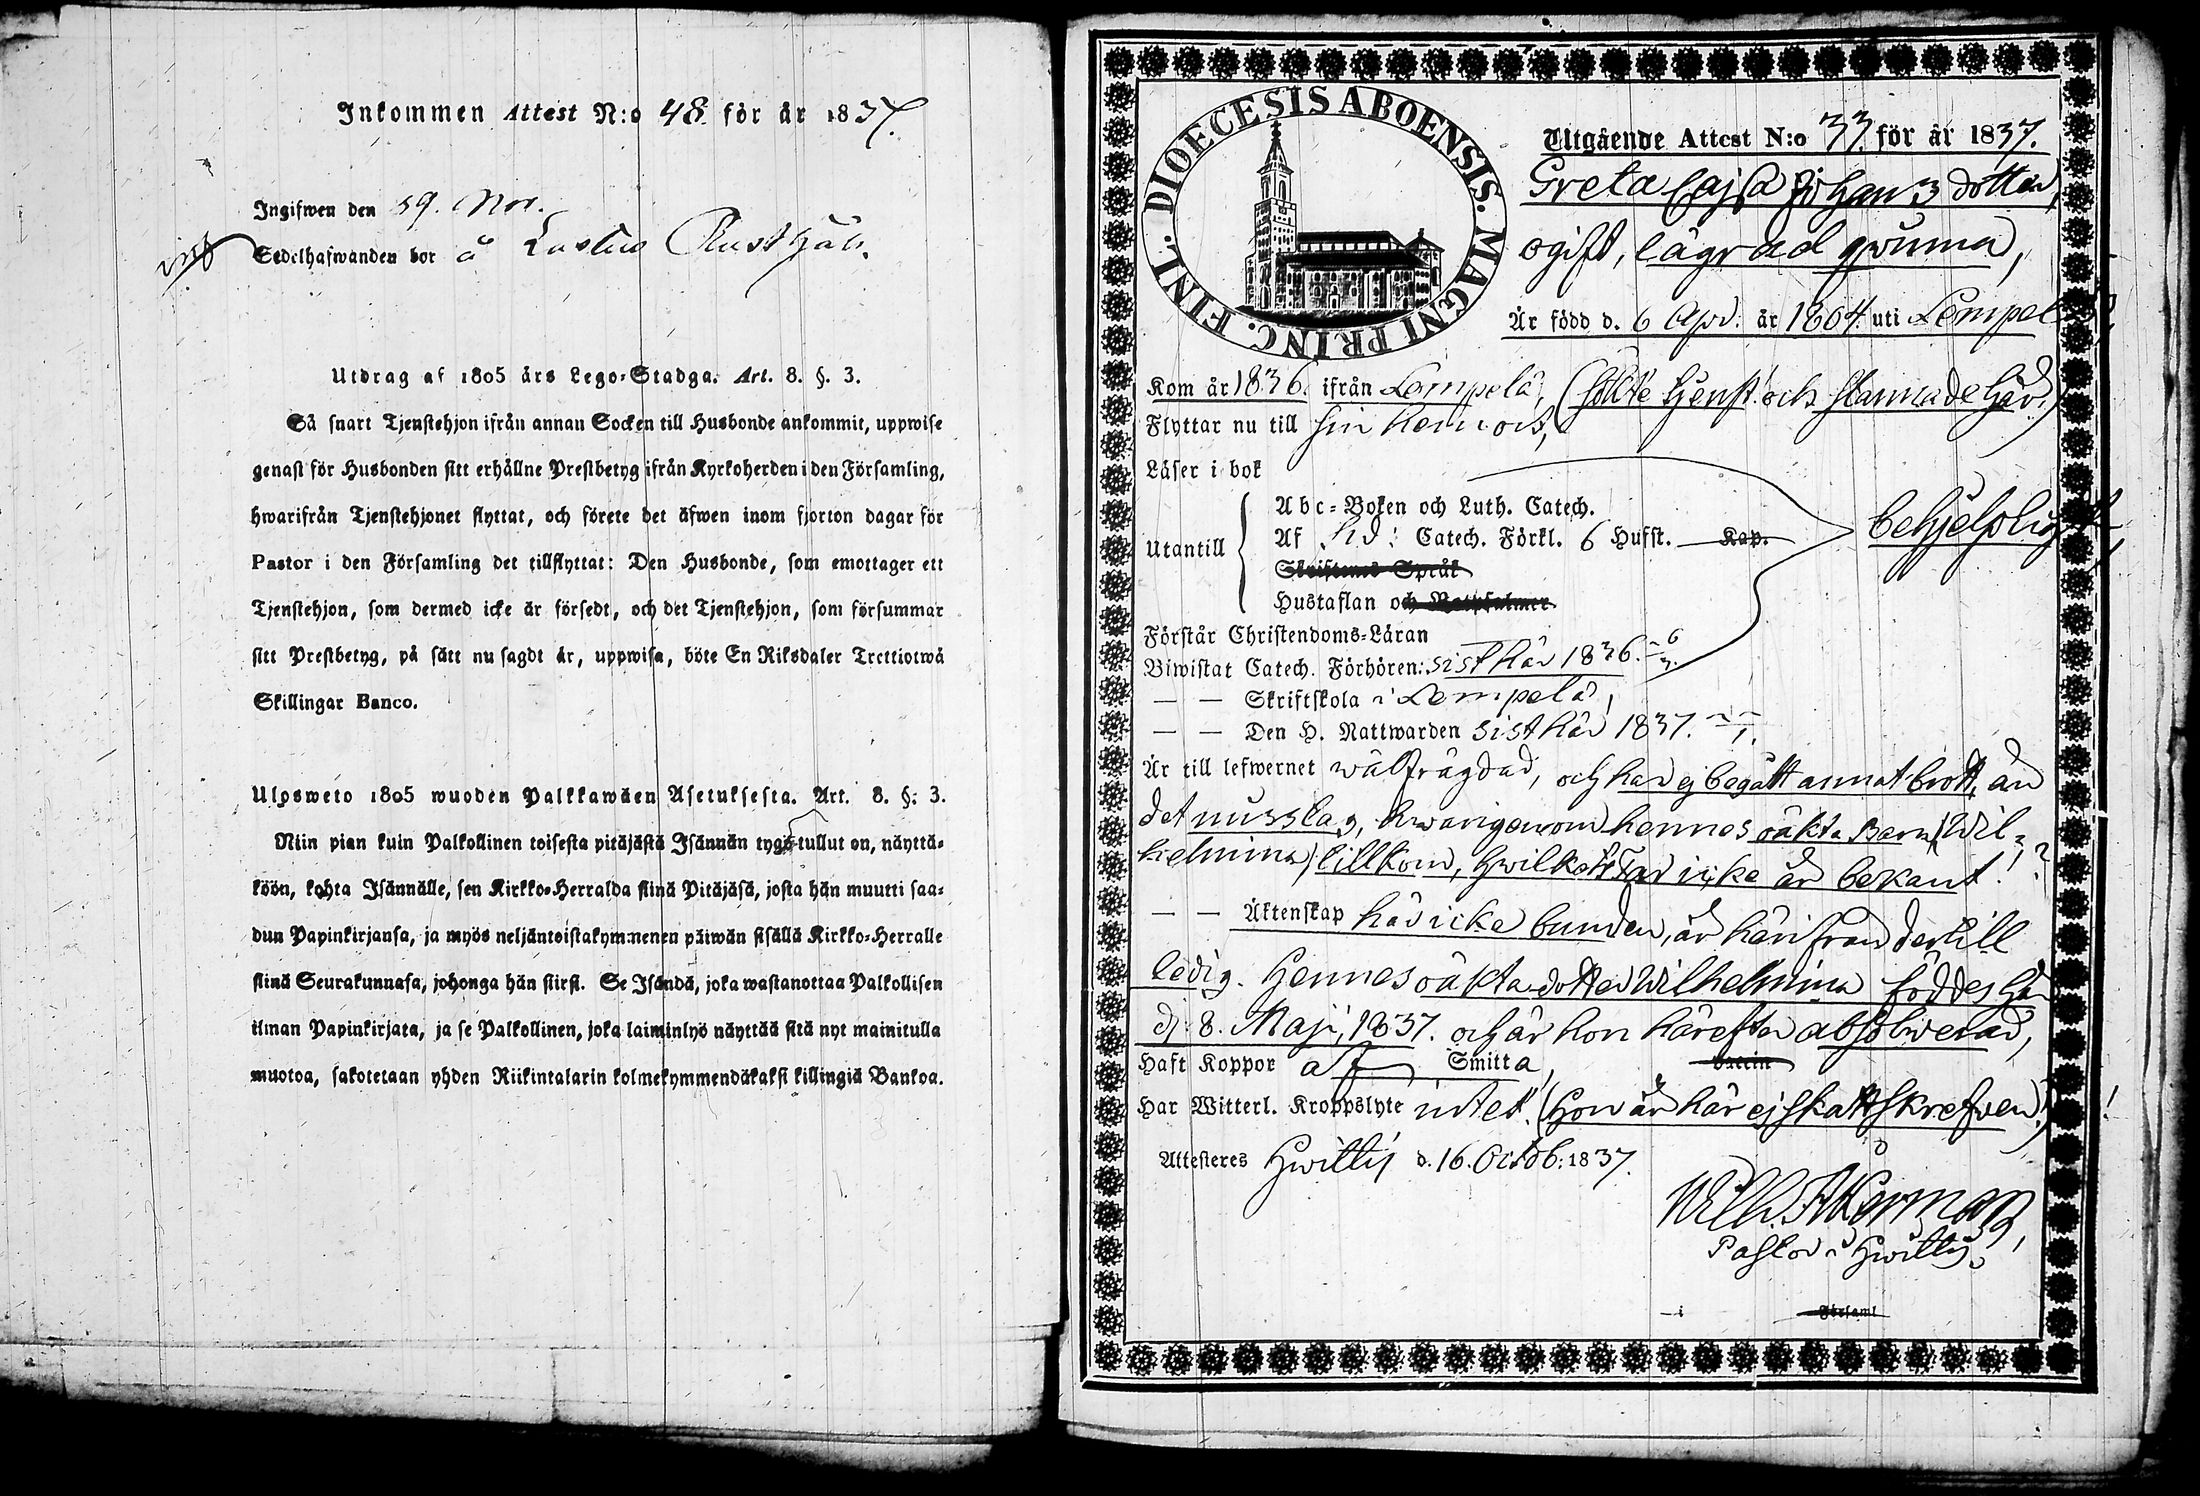 Inkommen Attest N:o 48. för år 1837.
Ingifwen den 19. Nov.
Sedelhafwanden bor å Rusthåll.
Utdrag af 1805 års Lego-Stadga. Art. 8. §. 3.
Så snart Tjenstehjon ifrån annan Socken till Husbonde ankommit, uppwise
genast för Husbonden sitt erhållne Prestbetyg ifrån Kyrkoherden i den Församling,
hwarifrån Tjenstehjonet flyttat, och förete det äfwen inom fjorton dagar för
Pastor i den Församling det tillflyttat: Den Husbonde, som emottager ett
Tjenstehjon, som dermed icke är försedt, och det Tjenstehjon, som försummar
sitt Prestbetyg, på sätt nu sagdt är, uppwisa, böte En Riksdaler Trettiotwå
Skillingar Banco.
Ulosweto 1805 wuoden Palkkawäen Asetuksesta. Art. 8. §. 3.
Niin pian kuin Palkollinen toisesta pitäjästä Isännän tygö tullut on, näyttä-
köön, kohta Isännälle, sen Kirkko-Herralda siinä Pitäjäsä, josta hän muutti saa-
dun Papinkirjansa, ja myös neljäntoistakymmenen päiwän sisällä Kirkko-Herralle
siinä Seurakunnasa, johonga hän siirsi. Se Isändä, joka wastanottaa Palkollisen
ilman Papinkirjata, ja se Palkollinen, joka laiminlyö näyttää sitä nyt mainitulla
muotoa, sakotetaan yhden Riikintalarin kolmekymmendäkaksi killingiä Bankoa.
DIOECESIS ABOENSIS. MAGNI PRINC. FINL.
Utgående Attest N:o 33. för år 1837.
Greta Cajsa Johansdotter,
ogift, lägrad qwinna,
Är född d. 6 Apr. år 1804. uti Lempelä,
Kom år 1836. ifrån Lempelä, (sökte tjenst och stannade här.)
Flyttar nu till sin hemort,
Läser i bok
Utantill
Abc-Boken och Luth. Catech.
Af Catech. Förkl. 6 Hufst. Kap.
Skriftenes Språk
Hustaflan och Botpsalmer
behjelpligt,
Förstår Christendoms-Läran
Biwistat Catech. Förhören: sist här 1836. 6/3.
— — Skriftskola i Lempelä,
— — Den H. Nattwarden sist här 1837.
Är till lefwernet wälfrägdad, och har ej begått annat brott, än
det misslag, hwarigenom hennes oäkta Barn (Wil-
helmina) tillkom, hwilkets Far icke är bekant!
— — Äktenskap här icke bunden, är härifrån dertill
ledig. Hennes oäkta dotter Wilhelmina föddes här
d. 8. Maji, 1837. och är hon härefter absolverad,
Haft Koppor af Smitta,
Har Witterl. Kroppslyte intet. (Hon är här ej skattskrefven)!
Attesteres Hwittis d. 16. Octob: 1837.
Wilh. Åkerman,
Pastor i Hwittis.
— i Församl